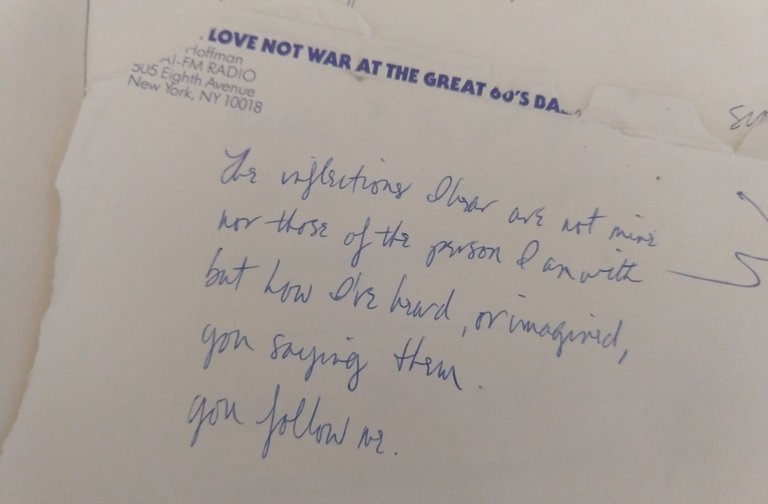 LOVE NOT WAR AT THE GREAT 60'S BA
Hoffman
AI-FM RADIO
505 Eighth Avenue
New York, NY 10018
The inflections I hear are not mine
nor those of the person I am with
but how I've heard, or imagined,
you saying them.
you follow me.